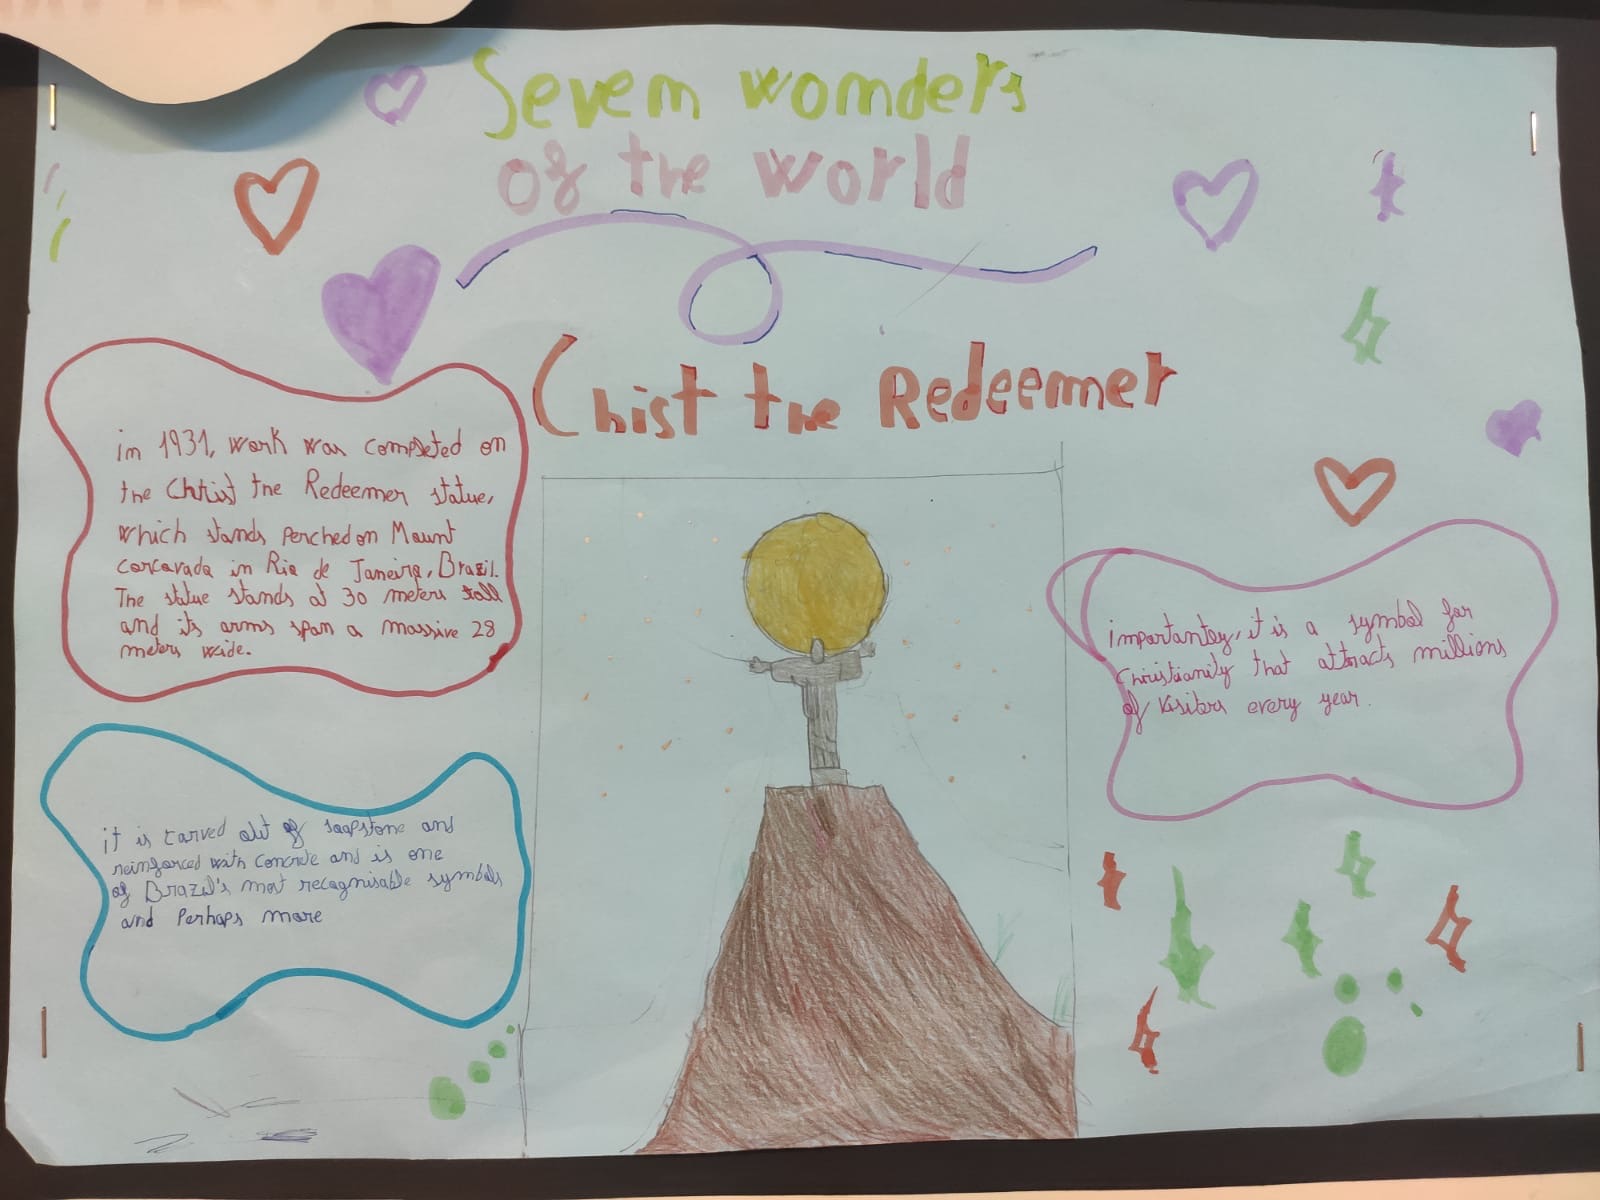 Sevem womders
of the world
Chist the Redeemer
im 1931, work was completed on
the Christ the Redeemer statue,
which stands perched on Mount
corcavada in Rio de Janeiro, Brazil.
The statue stands at 30 meters tall
and its arms span a massive 28
meters wide.
it is carved out of soapstone and
reinforced with concrete and is one
of Brazil's most recagnisable symbols
and Perhaps more
importantey, it is a symbol for
christianity that attracts millions
of visiters every year.